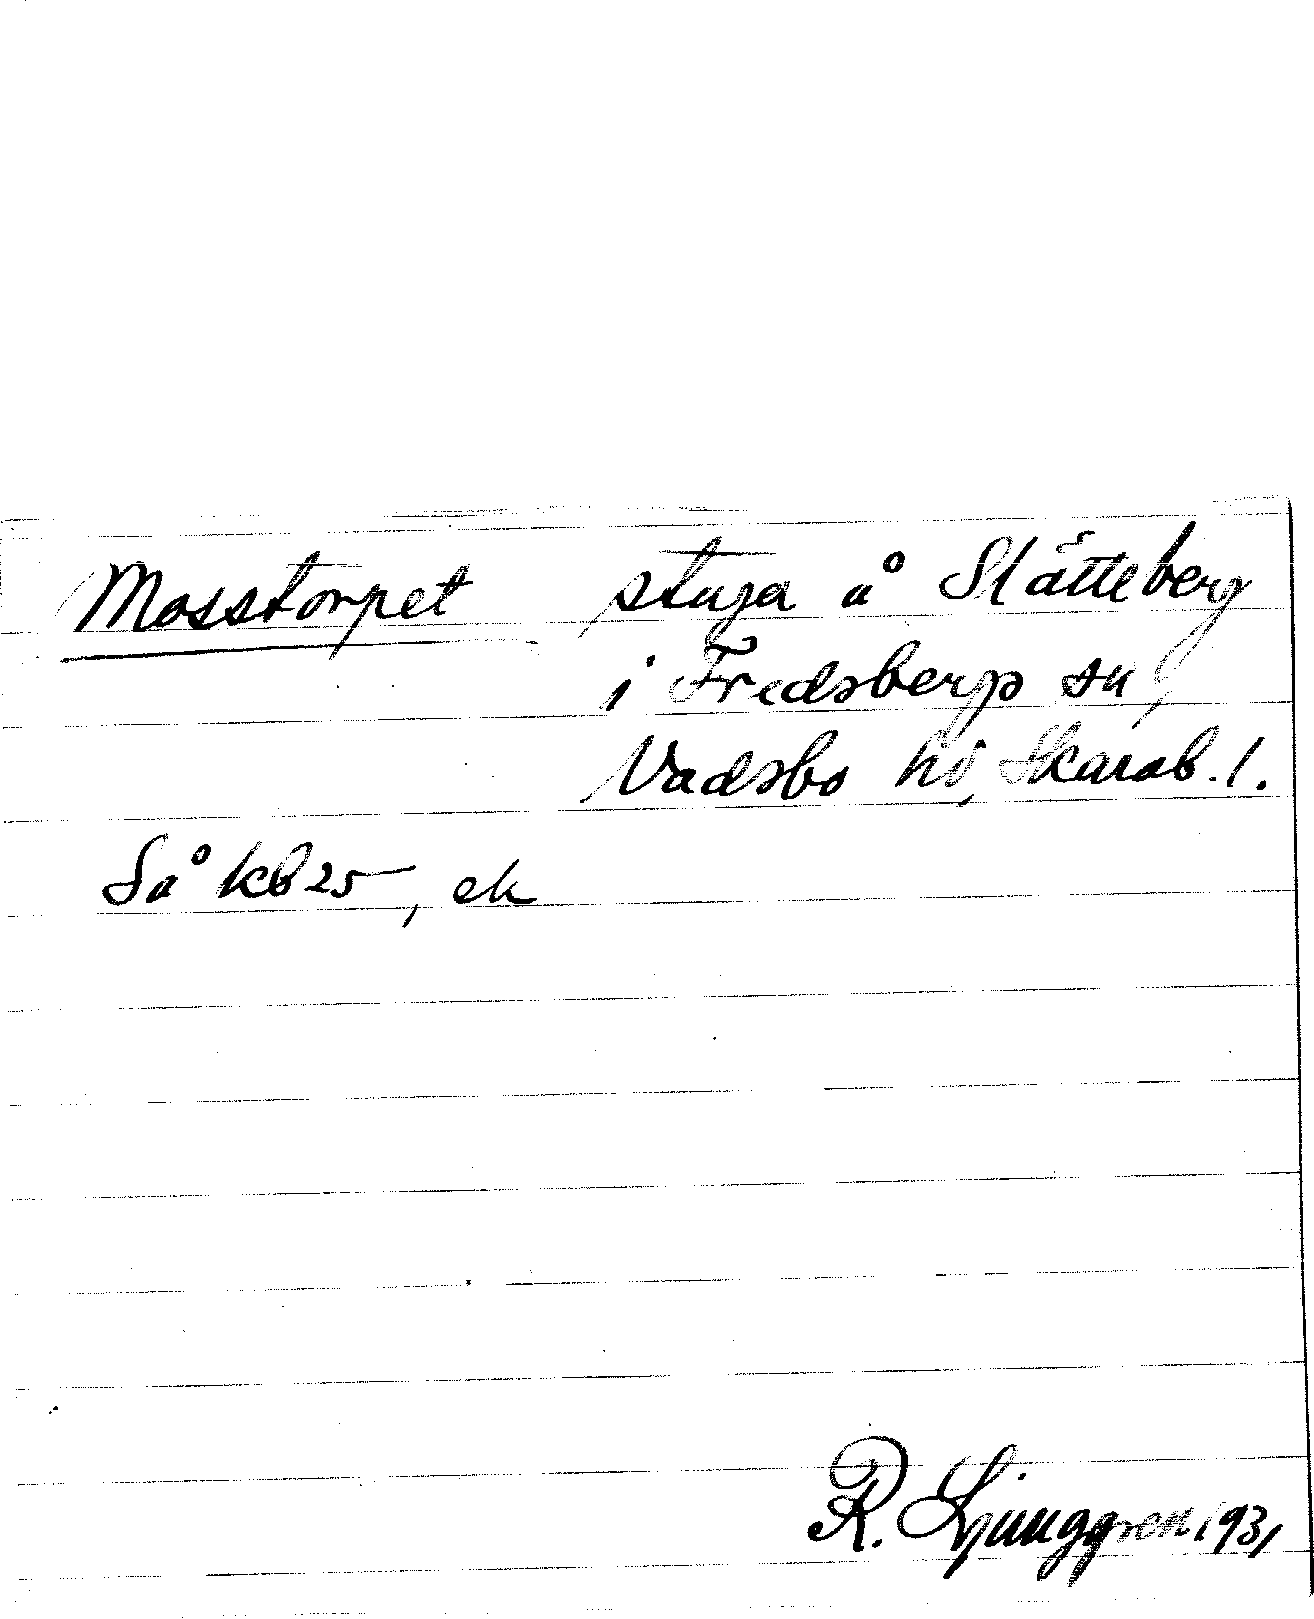 Mosstorpet stuga å Slätteberg
i Fredsbergs sn,
Vadsbo hd, Skarab. l.
Så kb 25, ek
R. Ljunggren 1931